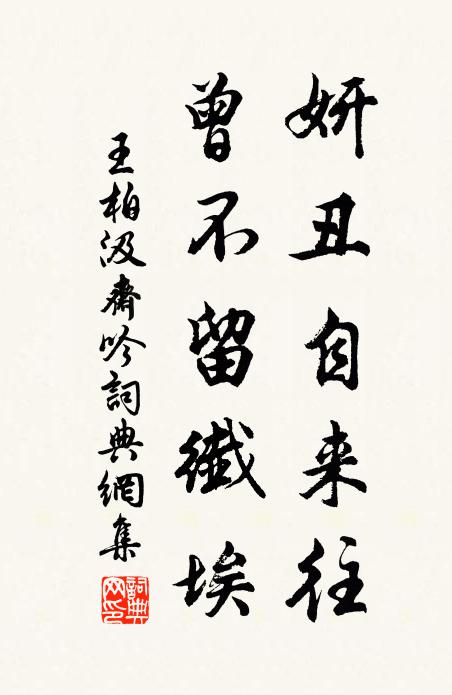 妍丑自来往
曾不留纖埃
王柏汲齋吟詞典網集
詞典網印